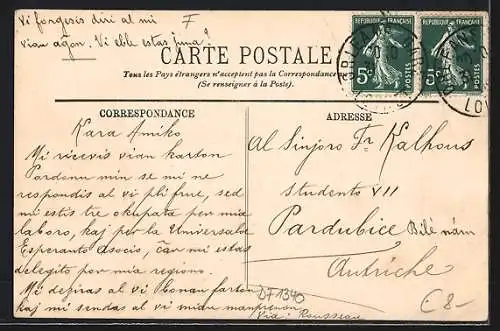 Vi forgesis diri al mi
vian aĝon. Vi eble estas juna?
F
REPUBLIQUE FRANÇAISE
REPUBLIQUE FRANÇAISE
5c POSTES
5c POSTES
CARTE POSTALE
Tous les Pays étrangers n'acceptent pas la Correspondance
(Se renseigner à la Poste).
CORRESPONDANCE
Kara Amiko
Mi ricevis vian karton
Pardonu min se mi ne
respondis al vi pli frue, sed
mi estis tre okupata per mia
laboro, kaj por la Universala
Esperanto Asocio, ĉar mi estas
delegito por mia regiono.
Mi deziras al vi bonan farton
kaj mi sendas al vi mian
Via: Rousseau
ADRESSE
Al Sinjoro Fr Kalhous
Studento VII
Pardubice Bilé nám
Autriche
DF1340
€8-